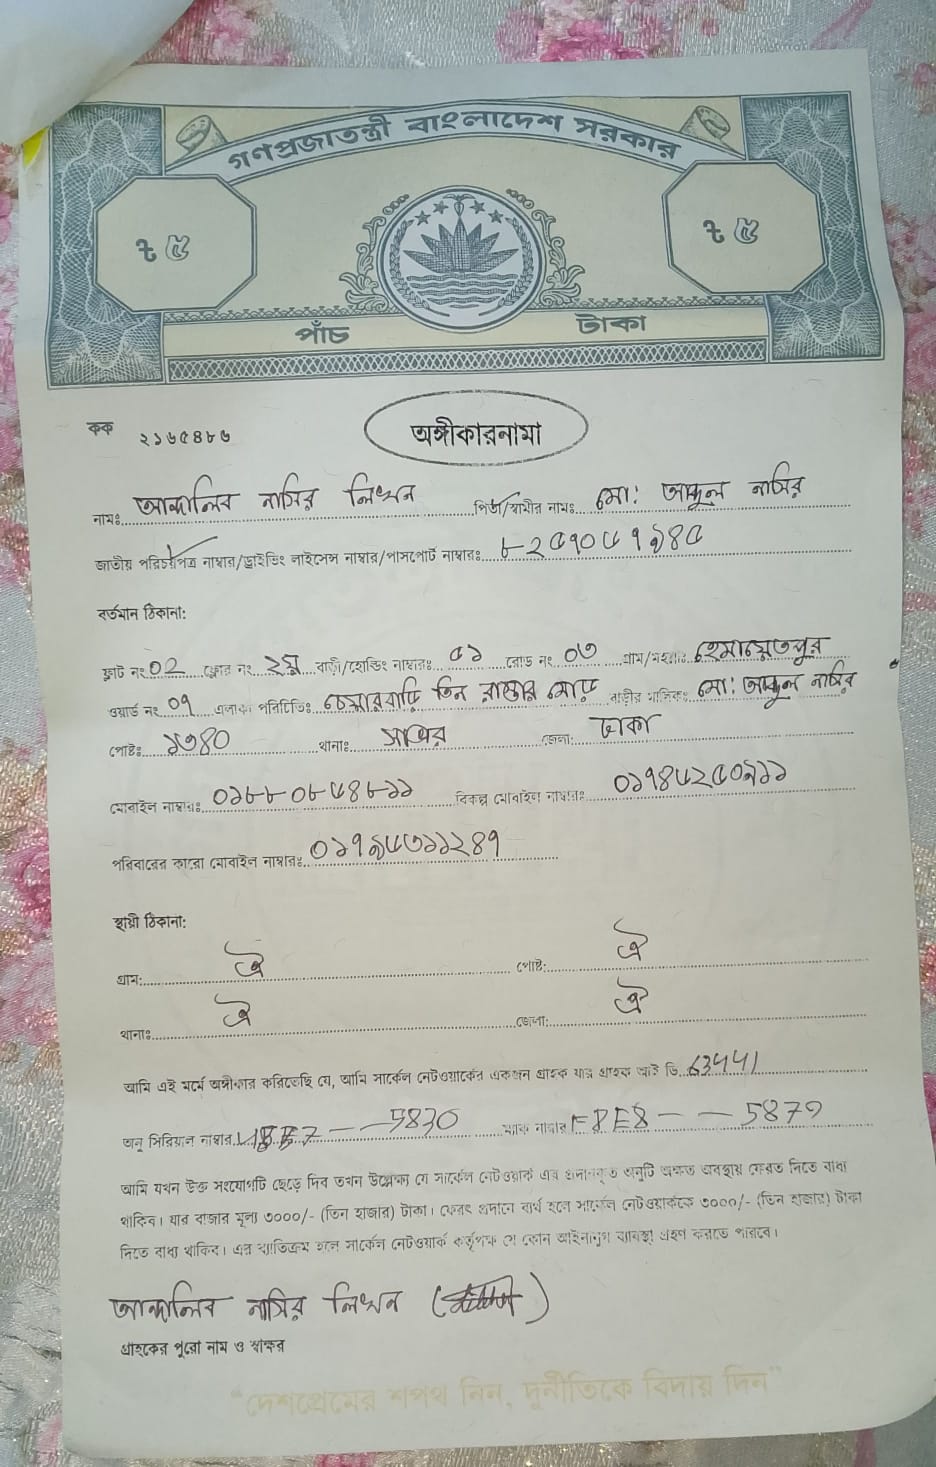 গণপ্রজাতন্ত্রী বাংলাদেশ সরকার
৳ ৫ ৳ ৫
পাঁচ টাকা
কক ২১৬৫৪৮৬
অঙ্গীকারনামা
নামঃ নাসির লিখন পিতা/স্বামীর নামঃ মো: নাসির
জাতীয় পরিচয়পত্র নাম্বার/ড্রাইভিং লাইসেন্স নাম্বার/পাসপোর্ট নাম্বারঃ ৮২৫৭০৫৭৯৪৫
বর্তমান ঠিকানা:
ফ্লাট নং 02 ফ্লোর নং ২য় বাড়ী/হোল্ডিং নাম্বারঃ ৫১ রোড নং ০৩ গ্রাম/মহল্লাঃ হেমায়েতপুর
ওয়ার্ড নং ০৭ এলাকা পরিচিতিঃ তিন রাস্তার মোড় বাড়ীর মালিকঃ মো: নাসির
পোষ্টঃ ১৩৪০ থানাঃ সাভার জেলা: ঢাকা
মোবাইল নাম্বারঃ ০১৮৮০৮৬৪৮১১ বিকল্প মোবাইল নাম্বারঃ
পরিবারের কারো মোবাইল নাম্বারঃ
স্থায়ী ঠিকানা:
গ্রাম: ঐ পোষ্ট: ঐ
থানাঃ ঐ জেলা: ঐ
আমি এই মর্মে অঙ্গীকার করিতেছি যে, আমি সার্কেল নেটওয়ার্কের একজন গ্রাহক যার গ্রাহক আই ডি
অনু সিরিয়াল নাম্বার 5830 ম্যাক নাম্বার
আমি যখন উক্ত সংযোগটি ছেড়ে দিব তখন উল্লেখ্য যে সার্কেল নেটওয়ার্ক এর প্রদানকৃত অনুটি অক্ষত অবস্থায় ফেরত দিতে বাধ্য
থাকিব। যার বাজার মূল্য ৩০০০/- (তিন হাজার) টাকা। ফেরৎ প্রদানে ব্যর্থ হলে সার্কেল নেটওয়ার্ককে ৩০০০/- (তিন হাজার) টাকা
দিতে বাধ্য থাকিব। এর ব্যতিক্রম হলে সার্কেল নেটওয়ার্ক কর্তৃপক্ষ যে কোন আইনানুগ ব্যবস্থা গ্রহণ করতে পারবে।
নাসির লিখন
গ্রাহকের পুরো নাম ও স্বাক্ষর
"দেশপ্রেমের শপথ নিন, দুর্নীতিকে বিদায় দিন"